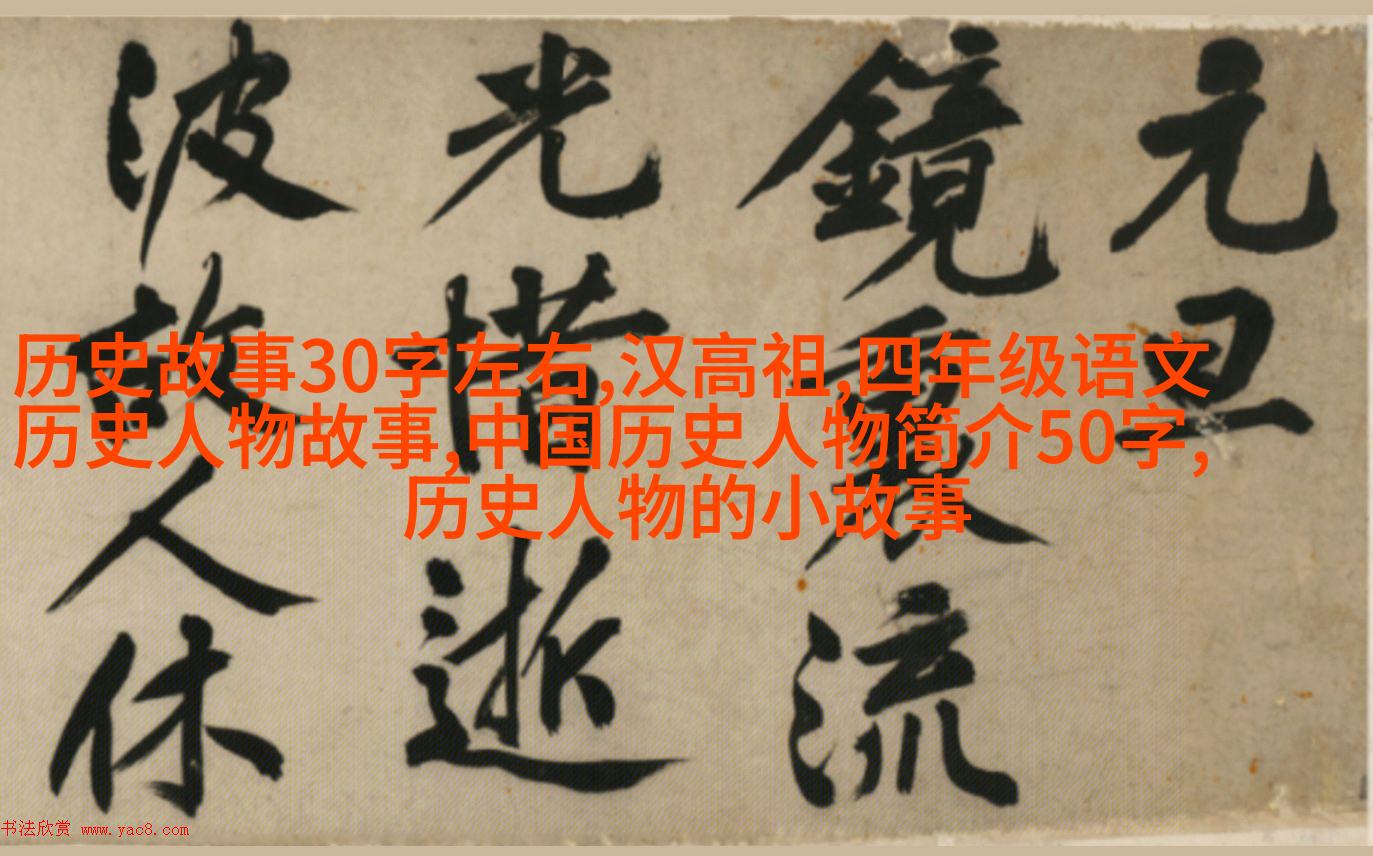 元旦
鏡裏流
光惜逝
波故人休
历史故事30字左右,汉高祖,四年级语文
历史人物故事,中国历史人物简介50字,
历史人物的小故事
书法欣赏 www.yac8.com